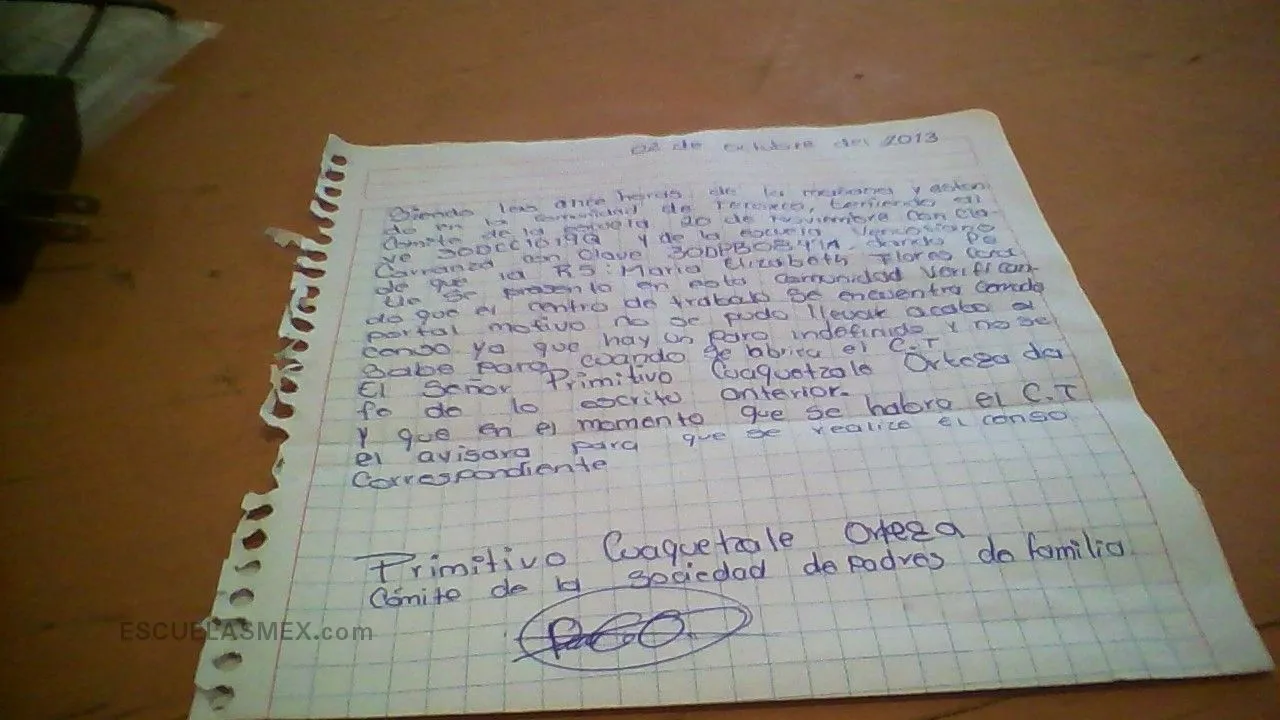 02 de octubre del 2013
Siendo las once horas de la mañana y estan-
do en la comunidad de Tercero, teniendo al
Comite de la escuela 20 de Noviembre con cla-
ve 30DCC1019Q y de la escuela Venustiano
Carranza con clave dando fe
de que la RS: Maria Elizabeth Flores
se presento en esta comunidad verifican-
do que el centro de trabajo se encuentra cerrado
por tal motivo no se pudo llevar acabo el
censo ya que hay un paro indefinido y no se
sabe para cuando se abrira el C.T
El Señor Primitivo Cuaquetzale Orteza da
fe de lo escrito anterior.
Y que en el momento que se habra el C.T
el avisara para que se realize el censo
Correspondiente
Primitivo Cuaquetzale Orteza
Cómite de la sociedad de padres de familia
ESCUELASMEX.com